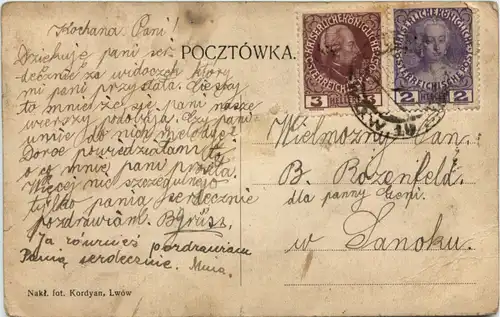 Kochana Pani!
Dziękuję pani ser-
decznie za widoczek który
mi pani przysłała. Cieszy
to mnie że się pani nasze
wierszy podobają. Czy pani
umie do nich melodję?
Dorce powiedziałam to
o co mnie pani prosiła.
Więcej nic szczególnego
tylko panią serdecznie
pozdrawiam. B.
Ja również pozdrawiam
Panią serdecznie. Mina.
POCZTÓWKA.
KAISERLICHE KÖNIGLICHE
ÖSTERREICHISCHE POST
3 HELLER 3
2 HELLER 2
Wielmożny Pan
B. Rozenfeld
dla panny Geni.
w Sanoku.
Nakł. fot. Kordyan, Lwów